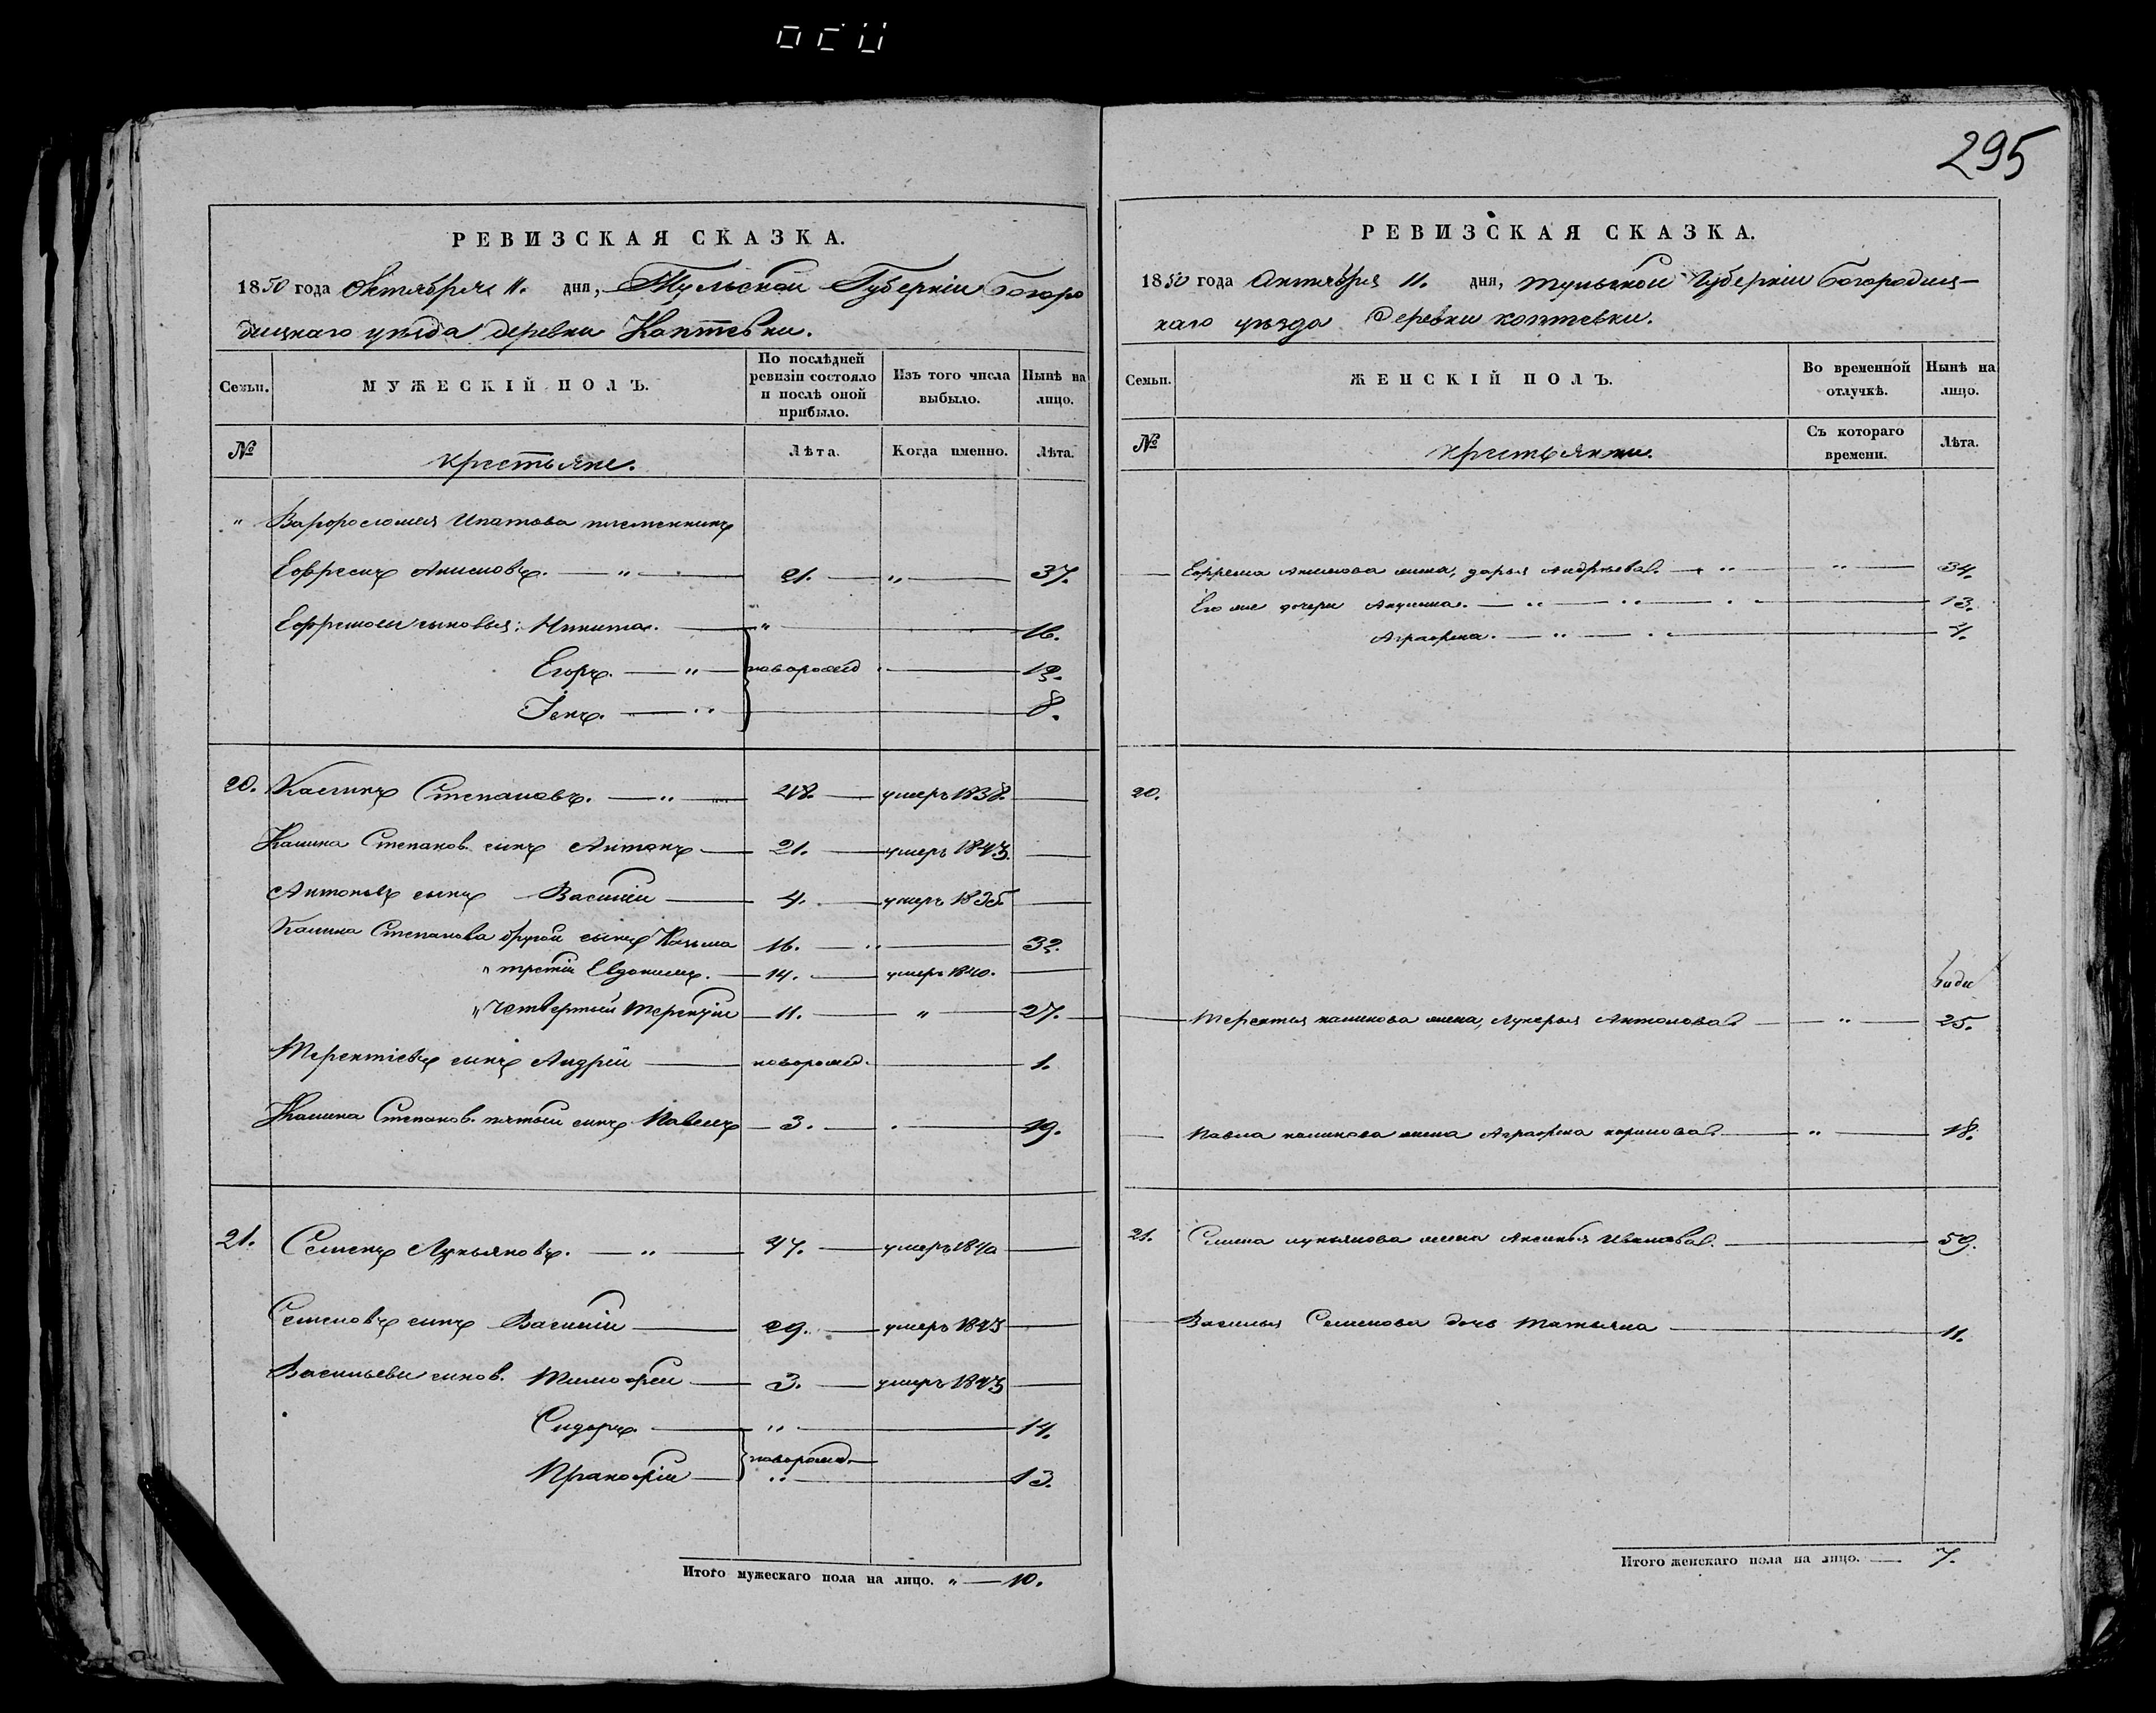 295
РЕВИЗСКАЯ СКАЗКА.
1850 года Октября 11. дня, Тульской Губерніи Богоро
дицкаго уѣзда деревни Коптевки.
Семьи.
МУЖЕСКІЙ ПОЛЪ.
По послѣдней ревизіи состояло и послѣ оной прибыло.
Изъ того числа выбыло.
Нынѣ на лицо.
№
крестьяне.
Лѣта.
Когда именно.
Лѣта.
" Варфоломея Ипатова племенникъ
Ефремъ Анисмовъ. — " — 21. — " — 37.
Ефремовы сыновья: Никита. — " — 16.
Егоръ. — " — новорожд — 12.
— " — 8.
20. Калинъ Степановъ. — " — 48. — умеръ 1838. —
Калина Степанов. сынъ Антонъ — 21. — умеръ 1843. —
Антоновъ сынъ Василій — 4. — умеръ 1835 —
Калина Степанова другой сынъ Козьма 16. — " — 32.
" третій Евдокимъ. — 14. — умеръ 1840. —
" четвертый Терентій — 11. — " — 27. —
Терентіевъ сынъ Андрей — новорожд. — 1.
Калина Степанов. пятый сынъ Павелъ — 3. — 19.
21. Семенъ Лукьяновъ. — " — 47. — умеръ 1840 —
Семеновъ сынъ Василій — 29. — умеръ 1843 —
Васильевы сынов. Тимофей — 3. — умеръ 1843 —
Сидоръ. — " — 14.
новорожд. —
Пракофій — " — 13.
Итого мужескаго пола на лицо. " — 10.
РЕВИЗСКАЯ СКАЗКА.
1850 года Октября 11. дня, Тульской Губерніи Богородиц-
каго уѣзда Деревни коптевки.
Семьи.
ЖЕНСКІЙ ПОЛЪ.
Во временной отлучкѣ.
Нынѣ на лицо.
№
крестьянки.
Съ котораго времени.
Лѣта.
— Ефрема Анисмова жена, дарья Андреева. — " — " — 34.
Его же дочери Акулина. — " — " — 13.
Аграфена. — " — 4.
20.
— Терентья калинова жена, Лукерья Антонова. — " — 25.
— Павла калинова жена Аграфена — " — 18.
21. Семена лукьянова жена Аксинья Иванова. — 59.
— Василья Семенова дочь Татьяна — 11.
Итого женскаго пола на лицо. — 7.